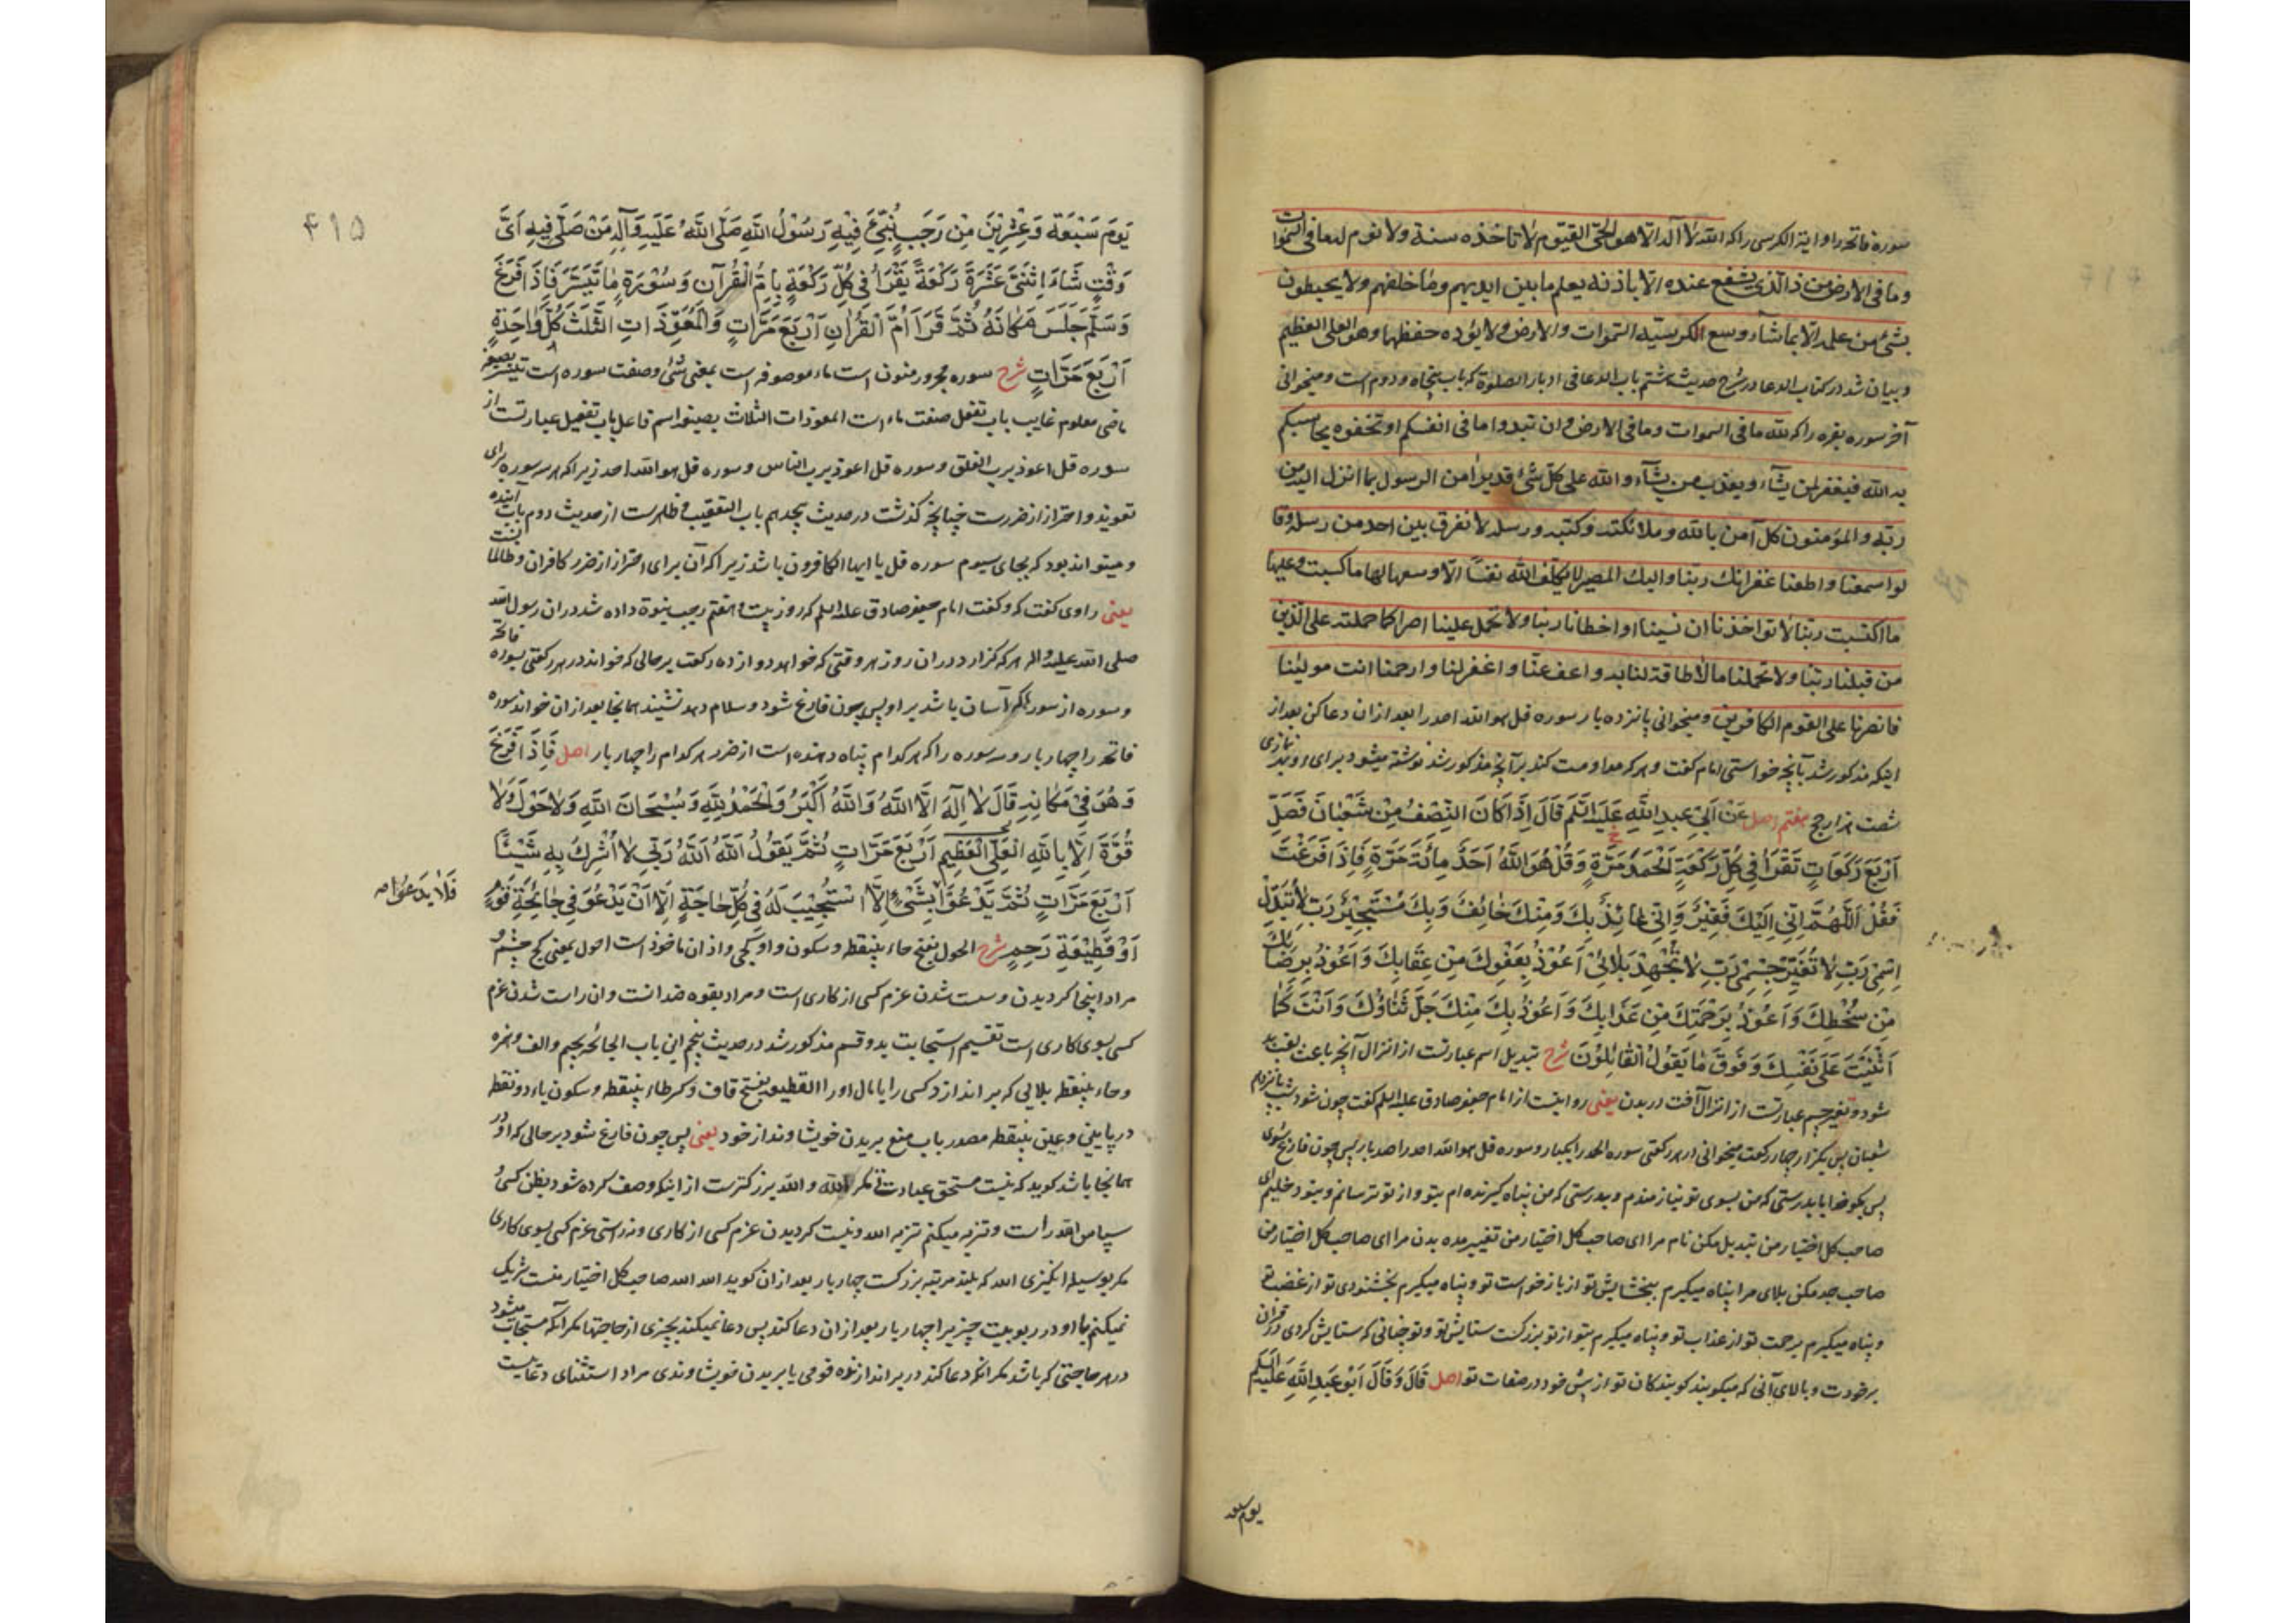 سورة فاتحه را و اية الكرسى را كه الله لا اله الا هو الحى القيوم لا تاخذه سنة ولا نوم له ما فى السموات
وما فى الارض من ذا الذى يشفع عنده الا باذنه يعلم ما بين ايديهم وما خلفهم ولا يحيطون
بشئ من علمه الا بما شآء وسع الكرسيه السموات والارض ولا يؤده حفظهما وهو العلى العظيم
و بيان شد در كتاب الدعا در شرح حديث هشتم باب الدعا فى ادبار الصلوة كه باب پنجاه و دوم است و ميخوانى
آخر سوره بقره را كه لله ما فى السموات وما فى الارض وان تبدوا ما فى انفسكم او تخفوه يحاسبكم
به الله فيغفر لمن يشآء و يعذب من يشآء والله على كل شئ قدير امن الرسول بما انزل اليه من
ربه والمؤمنون كل آمن بالله وملائكته وكتبه ورسله لا نفرق بين احد من رسله وقا
لوا سمعنا واطعنا غفرانك ربنا واليك المصير لا يكلف الله نفسًا الا وسعها لها ما كسبت وعليها
ما اكتسبت ربنا لا تؤاخذنا ان نسينا او اخطانا ربنا ولا تحمل علينا اصرا كما حملته على الذين
من قبلنا ربنا ولا تحملنا ما لا طاقة لنا به واعف عنا واغفر لنا وارحمنا انت مولينا
فانصرنا على القوم الكافرين و ميخوانى پانزده بار سوره قل هو الله احد را بعد از ان دعا كن بعد از
اينكه مذكور شد بآنچه خواستى امام گفت و هر كه مداومت كند بر آنچه مذكور شد نوشته ميشود براى او بهر نمازى
شصت هزار حج هفتم اصل عَنْ اَبِى عَبدِ اللهِ عَلَيهِ السَّلَم قَالَ اِذَا كَانَ النِّصْفُ مِنْ شَعْبَانَ فَصَلِّ
اَرْبَعَ رَكَعَاتٍ تَقْرَأُ فِى كُلِّ رَكْعَةٍ اَلْحَمْدُ مَرَّةً وَقُلْ هُوَ اللهُ اَحَدٌ مِائَةَ مَرَّةٍ فَاِذَا فَرَغْتَ
فَقُلْ اَللّٰهُمَّ اِنِّى اِلَيْكَ فَقِيْرٌ وَاِنِّى عَائِذٌ بِكَ وَمِنْكَ خَائِفٌ وَبِكَ مُسْتَجِيْرٌ رَبِّ لَا تُبَدِّلْ
اِسْمِىْ رَبِّ لَا تُغَيِّرْ جِسْمِىْ رَبِّ لَا تُجْهِدْ بَلَائِىْ اَعُوْذُ بِعَفْوِكَ مِنْ عِقَابِكَ وَاَعُوْذُ بِرِضَاكَ
مِنْ سَخَطِكَ وَاَعُوْذُ بِرَحْمَتِكَ مِنْ عَذَابِكَ وَاَعُوْذُ بِكَ مِنْكَ جَلَّ ثَنَاؤُكَ وَاَنْتَ كَمَا
اَثْنَيْتَ عَلَى نَفْسِكَ وَفَوْقَ مَا يَقُوْلُ الْقَائِلُوْنَ شرح تبديل اسم عبارتست از انزال آنچه باعث لقب بد
شود و تغيير جسم عبارتست از انزال آفت در بدن يعنى روايتست از امام جعفر صادق عليه السلم گفت چون شود شب پانزدهم
شعبان پس بگزار چهار ركعت ميخوانى در هر ركعتى سوره الحمد را يكبار و سوره قل هو الله احد را صد بار پس چون فارغ شوى
پس بگو خدايا بدرستى كه من بسوى تو نيازمندم و بدرستى كه من پناه گيرنده ام بتو و از تو ترسانم و بتو دخيلم اى
صاحب كل اختيار من تبديل مكن نام مرا اى صاحب كل اختيار من تغيير مده بدن مرا اى صاحب كل اختيار من
صاحب جهد مكن بلاى مرا پناه ميگيرم ببخشايش تو از بازخواست تو و پناه ميگيرم بخشنودى تو از غضب تو
و پناه ميگيرم برحمت تو از عذاب تو و پناه ميگيرم بتو از تو بزرگست ستايش تو و تو چنانى كه ستايش كردى در قران
بر خودت و بالاى آنى كه ميگويند گويندگان تو از پيش خود در صفات تو اصل قَالَ وَقَالَ اَبُوْ عَبدِ اللهِ عَلَيهِ السَّلَم
يوم سبعة
۴۱۵
يَوْمَ سَبْعَةٍ وَعِشْرِيْنَ مِنْ رَجَبٍ نُبِّئَ فِيْهِ رَسُوْلُ اللهِ صَلَّى اللهُ عَلَيهِ وَآلِهِ مَنْ صَلَّى فِيهِ اَىَّ
وَقْتٍ شَاءَ اِثْنَتَىْ عَشْرَةَ رَكْعَةً يَقْرَأُ فِى كُلِّ رَكْعَةٍ بِاُمِّ الْقُرْآنِ وَسُوْرَةٍ مَا تَيَسَّرَ فَاِذَا فَرَغَ
وَسَلَّمَ جَلَسَ مَكَانَهُ ثُمَّ قَرَأَ اُمَّ الْقُرْاٰنِ اَرْبَعَ مَرَّاتٍ وَالْمُعَوِّذَاتِ الثَّلٰثَ كُلَّ وَاحِدَةٍ
اَرْبَعَ مَرَّاتٍ شرح سوره مجرور منون است ماء موصوفه است بمعنى شئ و صفت سوره است تيسر بصيغه
ماضى معلوم غايب باب تفعل صفت ماء است المعوذات الثلاث بصيغه اسم فاعل باب تفعيل عبارتست از
سوره قل اعوذ برب الفلق و سوره قل اعوذ برب الناس و سوره قل هو الله احد زيرا كه هر سه سوره براى
تعويذ و احتراز از ضررست چنانچه گذشت در حديث هجدهم باب التعقيب و ظاهرست از حديث دوم باب آينده
و ميتواند بود كه بجاى سيوم سوره قل يا ايها الكافرون باشد زيرا كه آن براى احتراز از ضرر كافران و ظالمانست
يعنى راوى گفت كه و گفت امام جعفر صادق عليه السلم كه روز بيست و هفتم رجب نبوة داده شد در ان رسول الله
صلى الله عليه واله هر كه گزارد در ان روز هر وقتى كه خواهد دوازده ركعت بر حالى كه خواند در هر ركعتى بسوره فاتحه
و سوره از سور كه آسان باشد بر او پس چون فارغ شود و سلام دهد نشيند همانجا بعد از ان خواند سوره
فاتحه را چهار بار و سه سوره را كه هر كدام پناه دهنده است از ضرر هر كدام را چهار بار اصل فَاِذَا فَرَغَ
وَهُوَ فِىْ مَكَانِهِ قَالَ لَا اِلٰهَ اِلَّا اللهُ وَاللهُ اَكْبَرُ وَالْحَمْدُ لِلّٰهِ وَسُبْحَانَ اللهِ وَلَا حَوْلَ وَلَا
قُوَّةَ اِلَّا بِاللهِ الْعَلِىِّ الْعَظِيمِ اَرْبَعَ مَرَّاتٍ ثُمَّ يَقُوْلُ اَللهُ اَللهُ رَبِّى لَا اُشْرِكُ بِهِ شَيْئًا
اَرْبَعَ مَرَّاتٍ ثُمَّ يَدْعُوْ بِشَىْءٍ اِلَّا اسْتُجِيْبَ لَهُ فِى كُلِّ حَاجَةٍ اِلَّا اَنْ يَدْعُوَ فِى جَائِحَةِ قَوْمٍ
فَلَا يَدْعُوْا
اَوْ قَطِيْعَةِ رَحِمٍ شرح الحول بفتح حاء بينقطه و سكون واو كجى و از ان ماخوذ است احول بمعنى كج چشم و
مراد اينجا گرديدن و سست شدن عزم كسى از كارى است و مراد بقوه ضد انست و ان راست شدن عزم
كسى بسوى كارى است تقسيم استجابت بدو قسم مذكور شد در حديث پنجم اين باب الجائحه بجيم و الف و همزه
و حاء بينقطه بلائى كه بر اندازد كسى را يا مال او را القطيعه بفتح قاف و كسر طاء بينقطه و سكون ياء دو نقطه
در پايين و عين بينقطه مصدر باب منع بريدن خويشاوند از خود يعنى پس چون فارغ شود بر حالى كه او در
همانجا باشد گويد كه نيست مستحق عبادت مگر الله و الله بزرگترست از اينكه وصف كرده شود بظن كسى و
سپاس الله راست و تنزيه ميكنم تنزيه الله و نيست گرديدن عزم كسى از كارى و نه راستى عزم كسى بسوى كارى
مگر بوسيله انگيزى الله كه بلند مرتبه بزرگست چهار بار بعد از ان گويد الله الله صاحب كل اختيار منست شريك
نميكنم با او در ربوبيت چيزيرا چهار بار بعد از ان دعا كند پس دعا نميكند بچيزى از حاجتها مگر آنكه مستجاب ميشود
در هر حاجتى كه باشد مگر انكه دعا كند در بر اندازنده قومى يا بريدن خويشاوندى مراد استثناى دعائيست